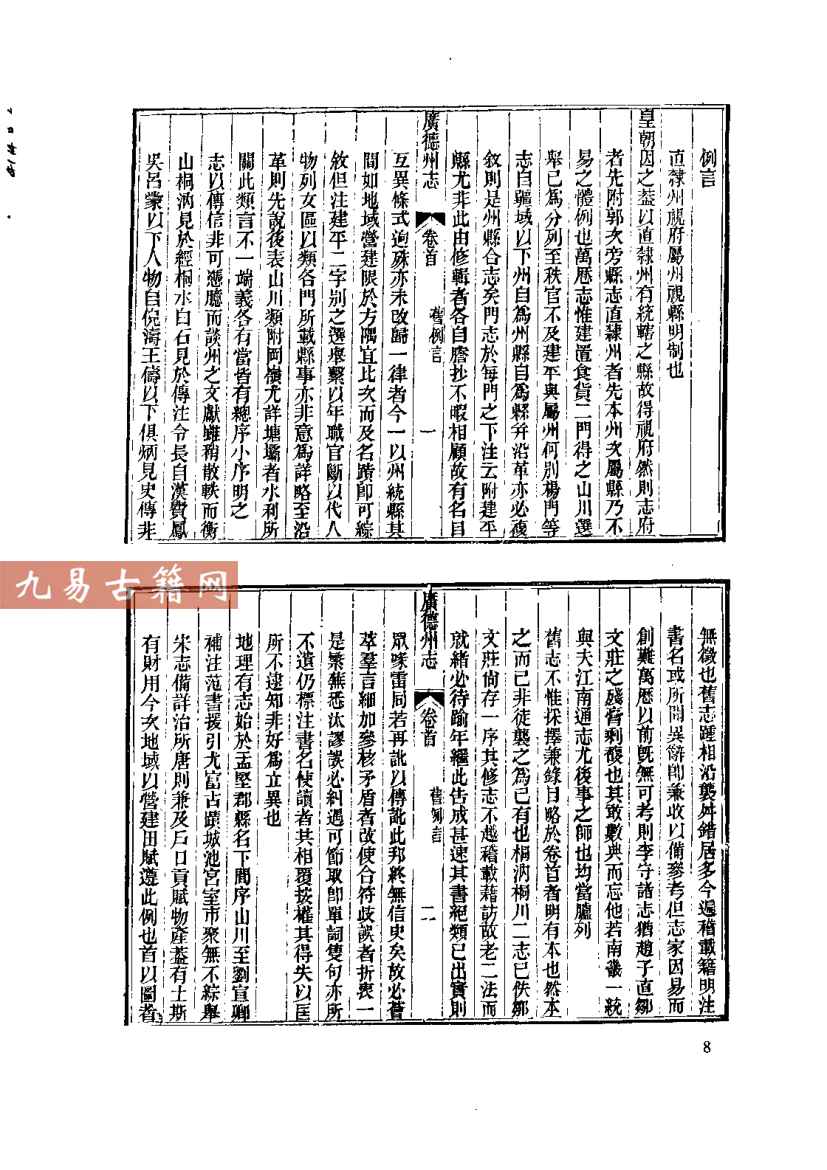 例言
直隸州視府屬州視縣明制也
皇朝因之蓋以直隸州有統轄之縣故得視府然則志府
者先附郭次旁縣志直隸州者先本州次屬縣乃不
易之體例也萬厯志惟建置食貨二門得之山川選
舉已為分列至秩官不及建平與屬州何別楊門等
志自疆域以下州自為州縣自為縣幷沿革亦必複
敘則是州縣合志矣門志於每門之下注云附建平
縣尤非此由修輯者各自謄抄不暇相顧故有名目
廣德州志
卷首
舊例言
一
互異條式逈殊亦未改歸一律者今一以州統縣其
間如地域營建限於方隅宜此次而及名蹟卽可綜
敘但注建平二字別之選舉繫以年職官斷以代人
物列女區以類各門所載縣事亦非意為詳略至沿
革則先說後表山川類附岡嶺尤詳塘壩者水利所
關此類言不一端義各有當皆有總序小序明之
志以傳信非可憑臆而談州之文獻雖稍散軼而衡
山桐汭見於經桐水白石見於傳注令長自漢費鳳
吳呂蒙以下人物自倪濤王儔以下俱炳見史傳非
無徵也舊志踵相沿襲舛錯居多今遍稽載籍明注
書名或所聞異辭卽兼收以備參考但志家因易而
創難萬厯以前旣無可考則李守諸志猶趙子直鄒
文莊之殘膏剩馥也其敢數典而忘他若南畿一統
與夫江南通志尤後事之師也均當臚列
舊志不惟採擇兼錄目略於卷首者明有本也然本
之而已非徒襲之為已有也桐汭桐川二志已佚鄒
文莊尚存一序其修志不越稽載藉訪故老二法而
就緒必待踰年繼此告成甚速其書絕類已出實則
廣德州志
卷首
舊例言
二
眾喙雷同若再訛以傳訛此邦終無信史矣故必薈
萃羣言細加參核矛盾者改使合符歧誤者折衷一
是繁蕪悉汰謬誤必糾遇可節取卽單詞隻句亦所
不遺仍標注書名使讀者共相覆按權其得失以匡
所不逮知非好為立異也
地理有志始於孟堅郡縣名下間序山川至劉宣卿
補注范書援引尤富古蹟城池宮室市聚無不綜舉
宋志備詳治所唐則兼及戶口貢賦物產蓋有土斯
有財用今次地域以營建田賦遵此例也首以圖者
九易古籍网
8